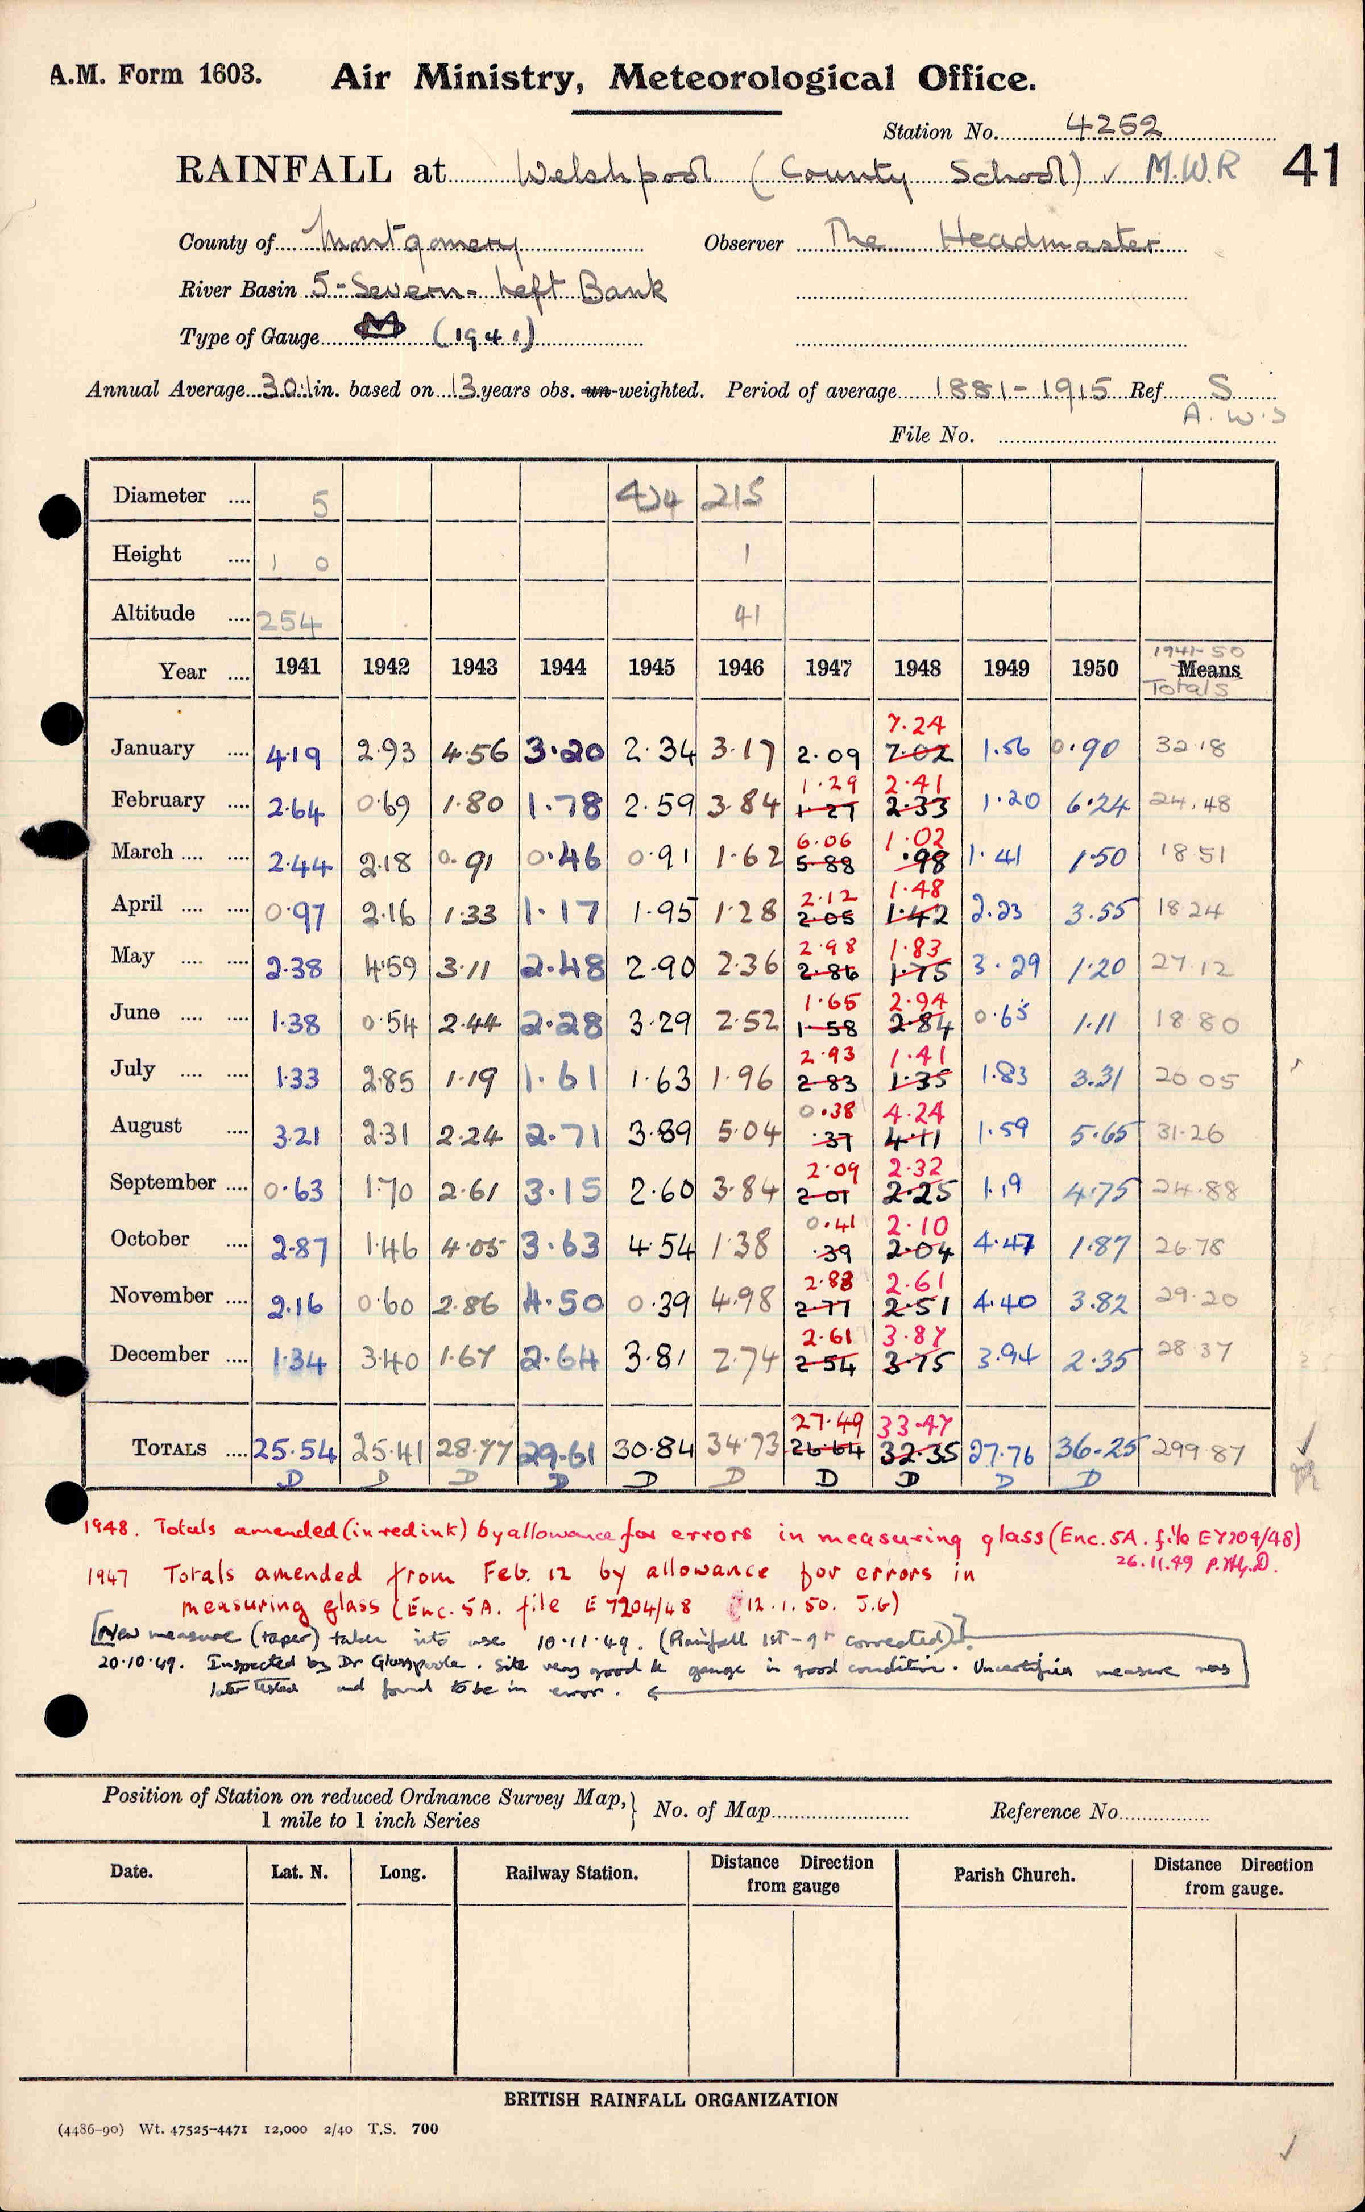 A.M. Form 1603. Air Ministry, Meteorological Office.
Station No. 4252
RAINFALL at Welshpool (County School) ✓ M.W.R 41
County of Montgomery Observer The Headmaster
River Basin 5-Severn-Left Bank
Type of Gauge M (1941)
Annual Average 30.1 in. based on 13 years obs. un-weighted. Period of average 1881-1915 Ref S
A.W.S
File No.
Diameter .... 5 424 215
Height .... 1 0 1
Altitude .... 254 41
1941-50
Year .... 1941 1942 1943 1944 1945 1946 1947 1948 1949 1950 Means
Totals
7.24
January .... 4.19 2.93 4.56 3.20 2.34 3.17 2.09 7.02 1.56 0.90 32.18
1.29 2.41
February .... 2.64 0.69 1.80 1.78 2.59 3.84 1.27 2.33 1.20 6.24 24.48
6.06 1.02
March .... .... 2.44 2.18 0.91 0.46 0.91 1.62 5.88 .98 1.41 1.50 18 51
2.12 1.48
April .... .... 0.97 2.16 1.33 1.17 1.95 1.28 2.05 1.42 2.23 3.55 18 24
2.98 1.83
May .... .... 2.38 4.59 3.11 2.48 2.90 2.36 2.86 1.75 3.29 1.20 27.12
1.65 2.94
June .... .... 1.38 0.54 2.44 2.28 3.29 2.52 1.58 2.84 0.65 1.11 18 80
2.93 1.41
July .... .... 1.33 2.85 1.19 1.61 1.63 1.96 2.83 1.35 1.83 3.31 20 05
0.38 4.24
August .... 3.21 2.31 2.24 2.71 3.89 5.04 .37 4.11 1.59 5.65 31.26
2.09 2.32
September .... 0.63 1.70 2.61 3.15 2.60 3.84 2.01 2.25 1.19 4.75 24.88
0.41 2.10
October .... 2.87 1.46 4.05 3.63 4.54 1.38 .39 2.04 4.47 1.87 26.78
2.83 2.61
November .... 2.16 0.60 2.86 4.50 0.39 4.98 2.77 2.51 4.40 3.82 29.20
2.61 3.87
December .... 1.34 3.40 1.67 2.64 3.81 2.74 2.54 3.75 3.94 2.35 28 37
27.49 33.47
TOTALS .... 25.54 25.41 28.77 29.61 30.84 34.73 26.64 32.35 27.76 36.25 299.87
D D D D D D D D D D
1948. Totals amended (in red ink) by allowance for errors in measuring glass (Enc. 5A. file E7204/48)
26.11.49
1947 Totals amended from Feb. 12 by allowance for errors in
measuring glass (Enc. 5A. file E 7204/48 12.1.50. J.G)
[New measure (taper) taken into use 10.11.49. (Rainfall 1st-9th corrected)].
20.10.49. Inspected by Dr Glasspoole. Site very good & gauge in good condition. Uncertified measure was
later tested and found to be in error.
Position of Station on reduced Ordnance Survey Map, } No. of Map Reference No.
1 mile to 1 inch Series
Date. Lat. N. Long. Railway Station. Distance Direction from gauge Parish Church. Distance Direction from gauge.
BRITISH RAINFALL ORGANIZATION
(4486-90) Wt. 47525-4471 12,000 2/40 T.S. 700